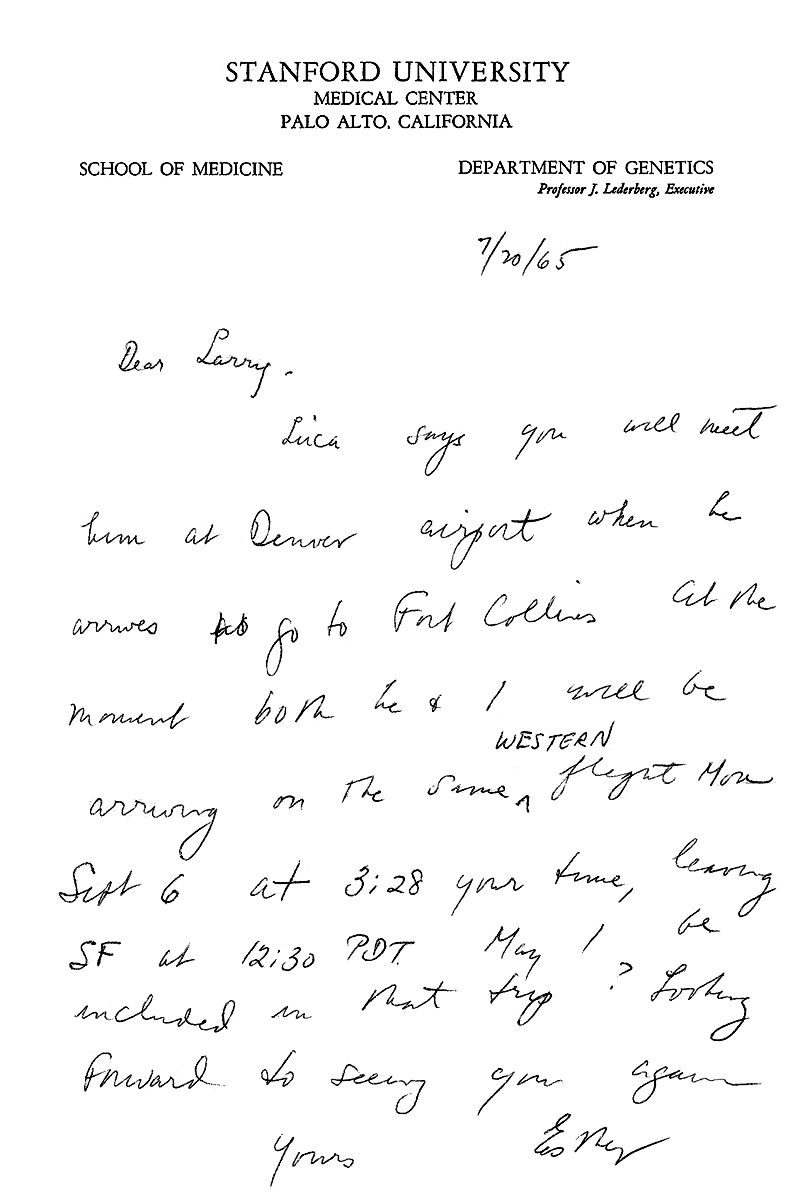 STANFORD UNIVERSITY
MEDICAL CENTER
PALO ALTO, CALIFORNIA
SCHOOL OF MEDICINE DEPARTMENT OF GENETICS
Professor J. Lederberg, Executive
7/20/65
Dear Larry.
Luca says you will meet
him at Denver airport when he
arrives to go to Fort Collins At the
moment both he & I will be
WESTERN
arriving on the same ^ flight Mon
Sept 6 at 3:28 your time, leaving
SF at 12:30 PDT. May I be
included in that trip? Looking
Forward to seeing you again
Yours Esther